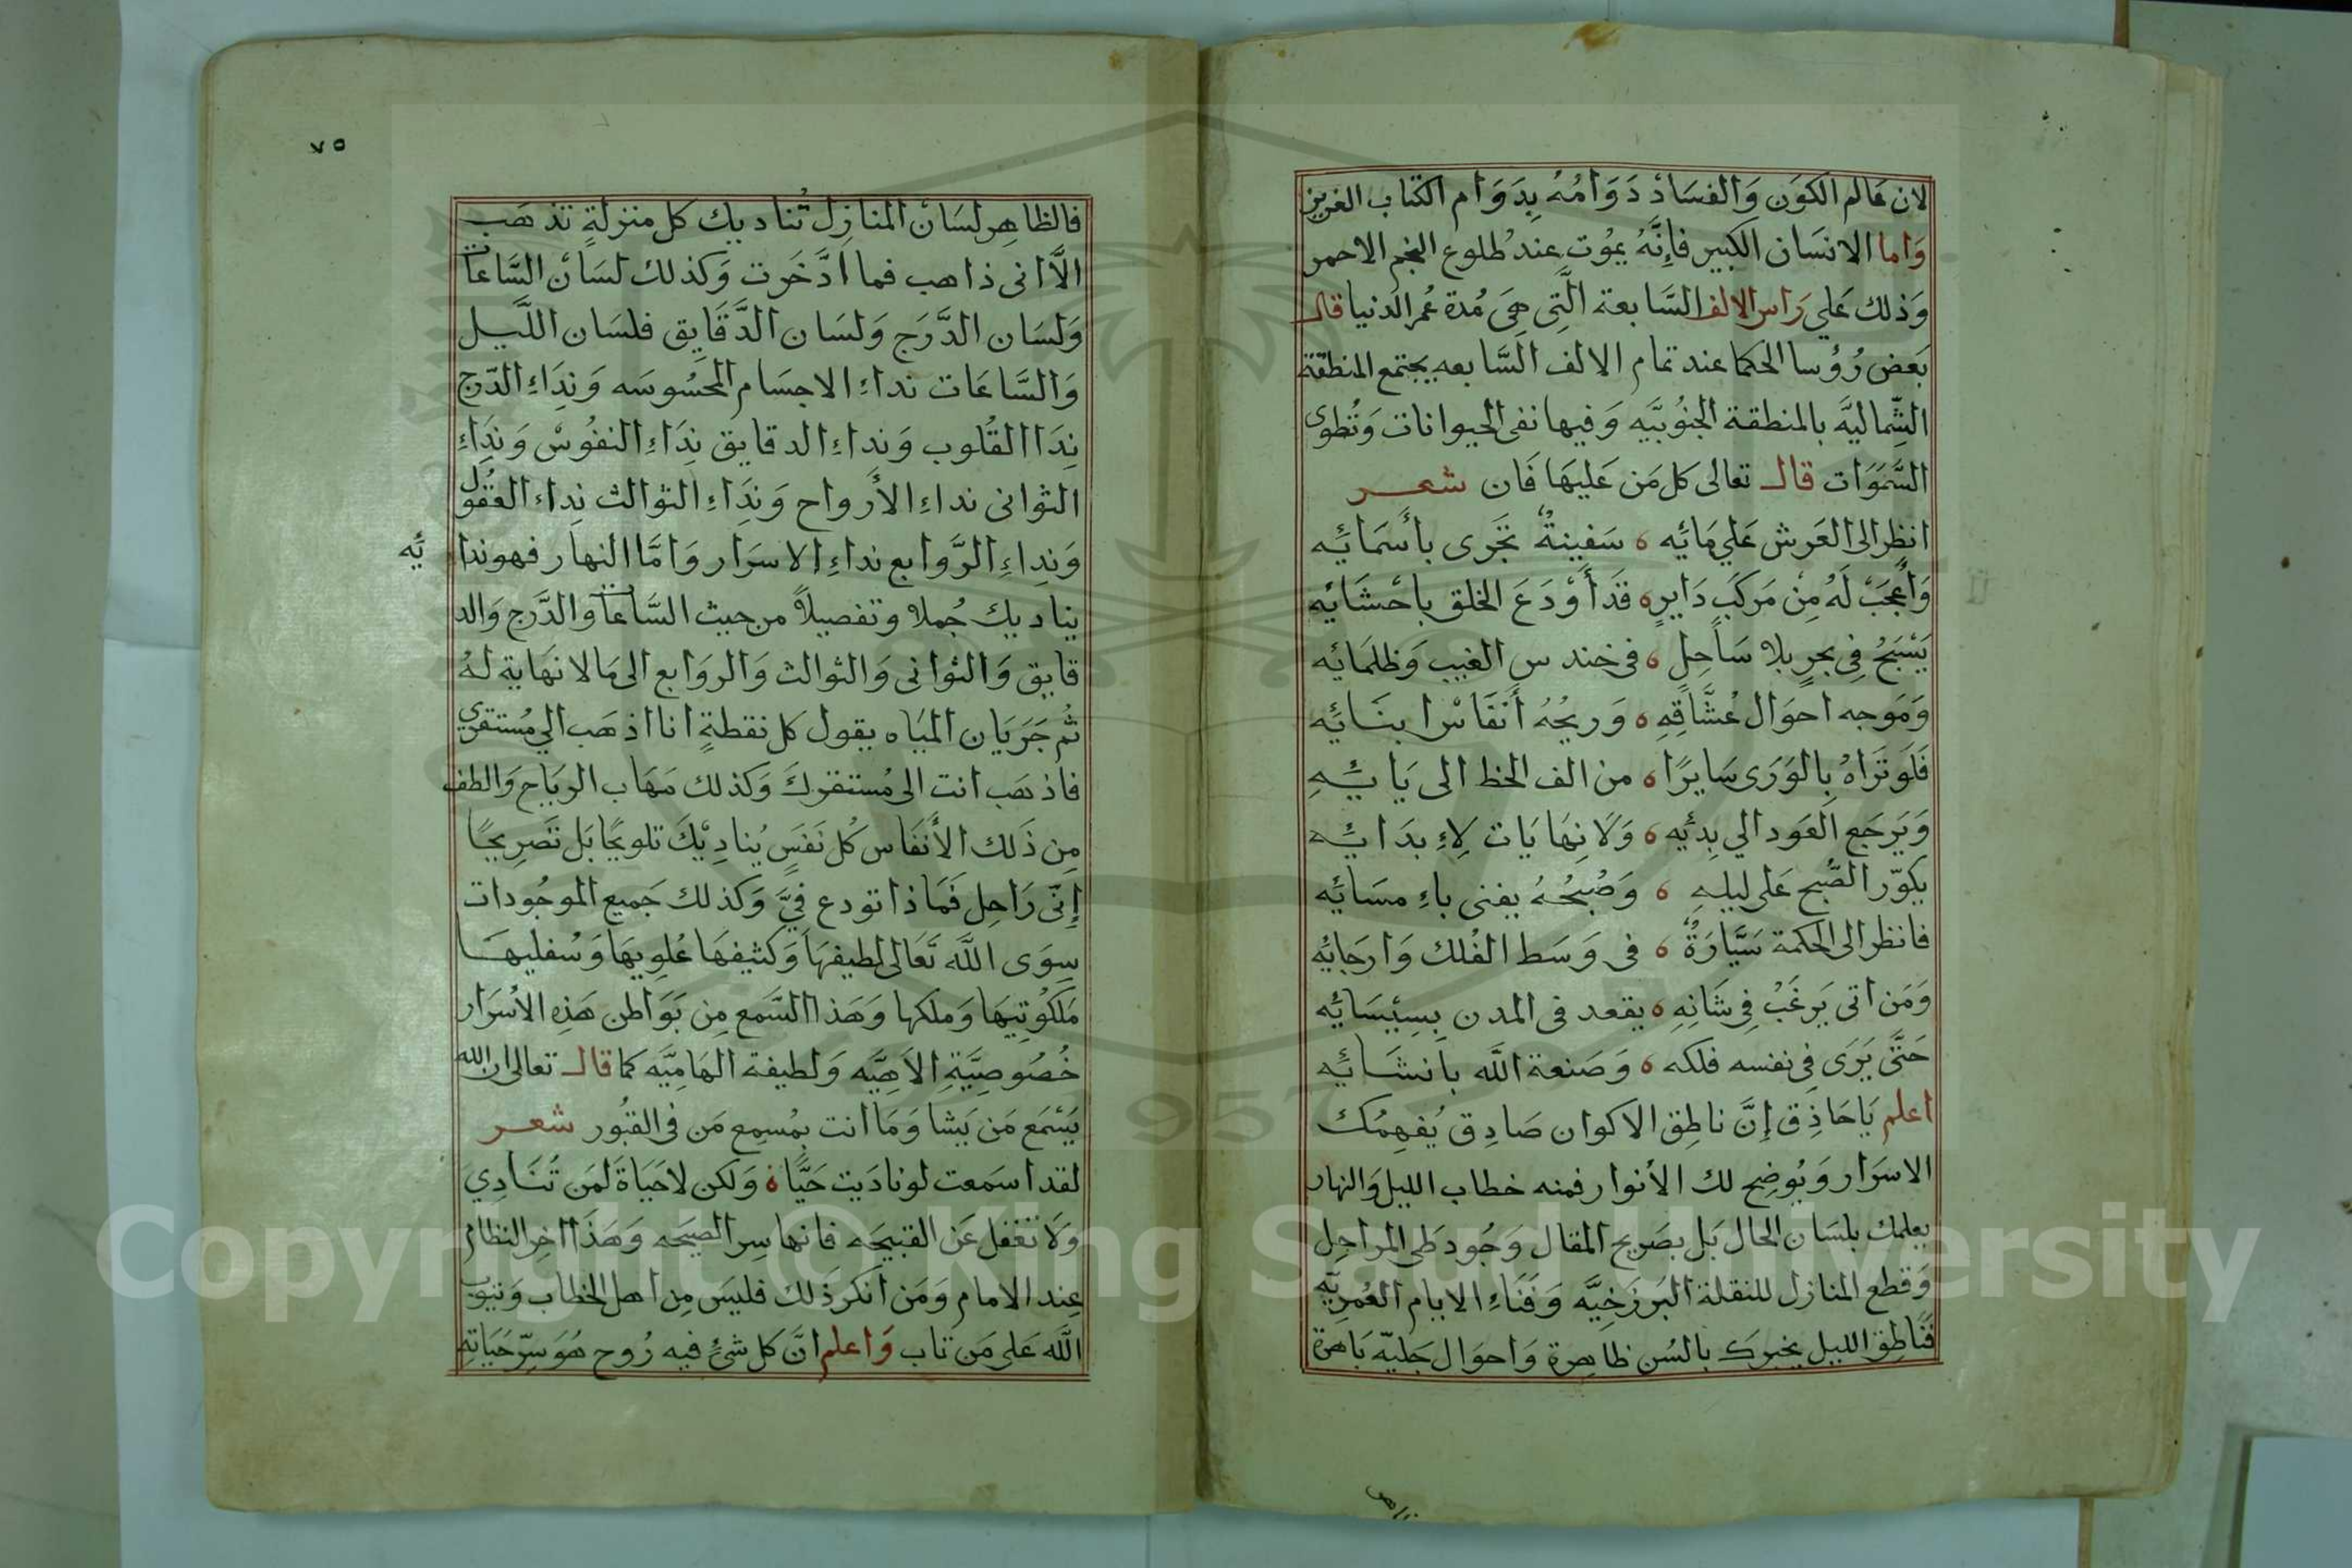 لان عالم الكَوَن وَالفسَادْ دَوَامُهُ بِدَوَام الكتاب العزيز
وَاما الانسَان الكبير فإِنَّهُ يمُوت عِند طلوع النجم الاحمر
وَذلك عَلي رَاس الالف السَّابعة الَّتِي هِيَ مُدة عُمر الدنيا قال
بَعض رُؤسا الحكما عند تمام الالف السَّابعه يجتمع المنطقة
الشِّماليَّه بالمنطقة الجنُوبيَّه وَفيها نفى الحيوانات وَتُطوى
السَّمَوَات قال تعالى كل مَن عَليهَا فَان شعر
انظر الى العَرش عَلي مَائِه ه سَفينةٌ تجَرى بأَسمَائِه
وَأعجَبْ لَهُ مِنْ مَركَب دَايرٍ ه قَد أَوْدَعَ الخلق باحْشَائِه
يَسْبَحُ فِي بحرٍ بلا سَاحِلٍ ه فى خندس الغيب وَظلمَائه
وَمَوجه احوَال عُشَّاقِهِ ه وَريحُهُ أَنفَاسْ ابنَائِه
فَلَو تَرَاهُ بِالوَرَى سَايرًا ه من الف الخط الى يَائِهِ
وَيَرجَع العَود الي بِدئِه ه وَلَا نِهَايَات لاِءِ بدَائِه
يكوّر الصُّبح عَلى ليلهِ ه وَصُبحُهُ يفنى باءِ مسَائِه
فانظر الى الحكمة سَيَّارَةٌ ه فى وَسَط الفُلك وَارجَايُه
وَمَن اتى يَرغَبُ فِي شَانِهِ ه يقعد فى المدن بِسِيْسَائِه
حَتَّى يَرَى فِي نفسه فلكه ه وَصَنعة الله بانشَائِه
اعلم يَا حَاذِق إِنَّ ناطِق الاكوان صَادِق يُفهِمُك
الاسرَار وَيُوضح لك الأنوار فمنه خطاب الليل وَالنهار
يعلمك بلسَان الحال بَل بصَريح المقال وَجُود طي المراحِل
وَقطع المنازل للنقلة البَرزَخِيَّه وَفَنَاءِ الايام العُمريّه
فَناطِق الليل يخبرك بالسُن ظاهرة وَاحوَال جَليّه بَاهرة
٧٥
فالظاهِر لسَان المنازِل تُناديك كل منزلةٍ تذهَب
الاَّ انى ذاهب فما ادَّخَرت وَكذلك لسَان السَّاعات
وَلسَان الدَّرَج وَلسَان الدَّقَايق فلسَان اللَّيل
وَالسَّاعَات نداءِ الاجسَام المحَسُوسَه وَنِدَاءِ الدّرج
نِدَا القُلوب وَنداءِ الدقايق نِدَاءِ النفُوسْ وَنِدَاءِ
الثوانى نداءِ الأَرواح وَنِدَاءِ الثوالث نِداء العُقول
وَنِداءِ الرَّوابع نداءِ الاسرَار وَامَّا النهار فهو ندا
ئيه
يناديك جُملا وتفصيلاً من حيث السَّاعات وَالدَّرج وَالد
قايق وَالثوانى وَالثوالث وَالروَابع الى مَا لا نهَاية لهُ
ثُم جَرَيَان الميَاه يقول كل نقطةٍ انا اذهَب الي مُستقري
فاذهَب انت الى مُستقركَ وَكذلك مَهَاب الريَاح وَالطف
مِن ذَلك الأَنفَاس كُل نَفَسٍ يُنادِيْكَ تلويحًا بَل تَصرِيحًا
إنّى رَاحِل فَمَا ذا تودع فيَّ وَكذلك جَميع الموجُودات
سِوَى اللَّه تَعَالى لطيفهَا وَكثيفهَا عُلوِيهَا وَسُفليهَا
مَلكُوتِيهَا وَملكها وَهَذا السَّمع مِن بَوَاطن هَذِه الأسرَار
خُصُوصِيَّةِ الاَهِيَّه وَلطيفة الهَامِيَّه كما قال تعالى ان الله
يَسْمَع مَن يَشا وَمَا انت بِمُسمِع مَن فى القبُور شعر
لقد اسَمعت لو نادَيت حَيًّا ه وَلكن لا حَيَاةَ لمَن تُنَادِي
وَلَا تَغفل عَن القبيحَه فانها سِر الصيَحه وَهَذَا اخِر النظام
عِند الامام وَمَن انكَر ذَلك فليَس مِن اهل الخطاب وَيتوب
اللَّه عَلى مَن تاب وَاعلم انَّ كل شئٍ فيه رُوح هُوَ سِرّ حَيَاتِهِ
Copyright © King Saud University
1957